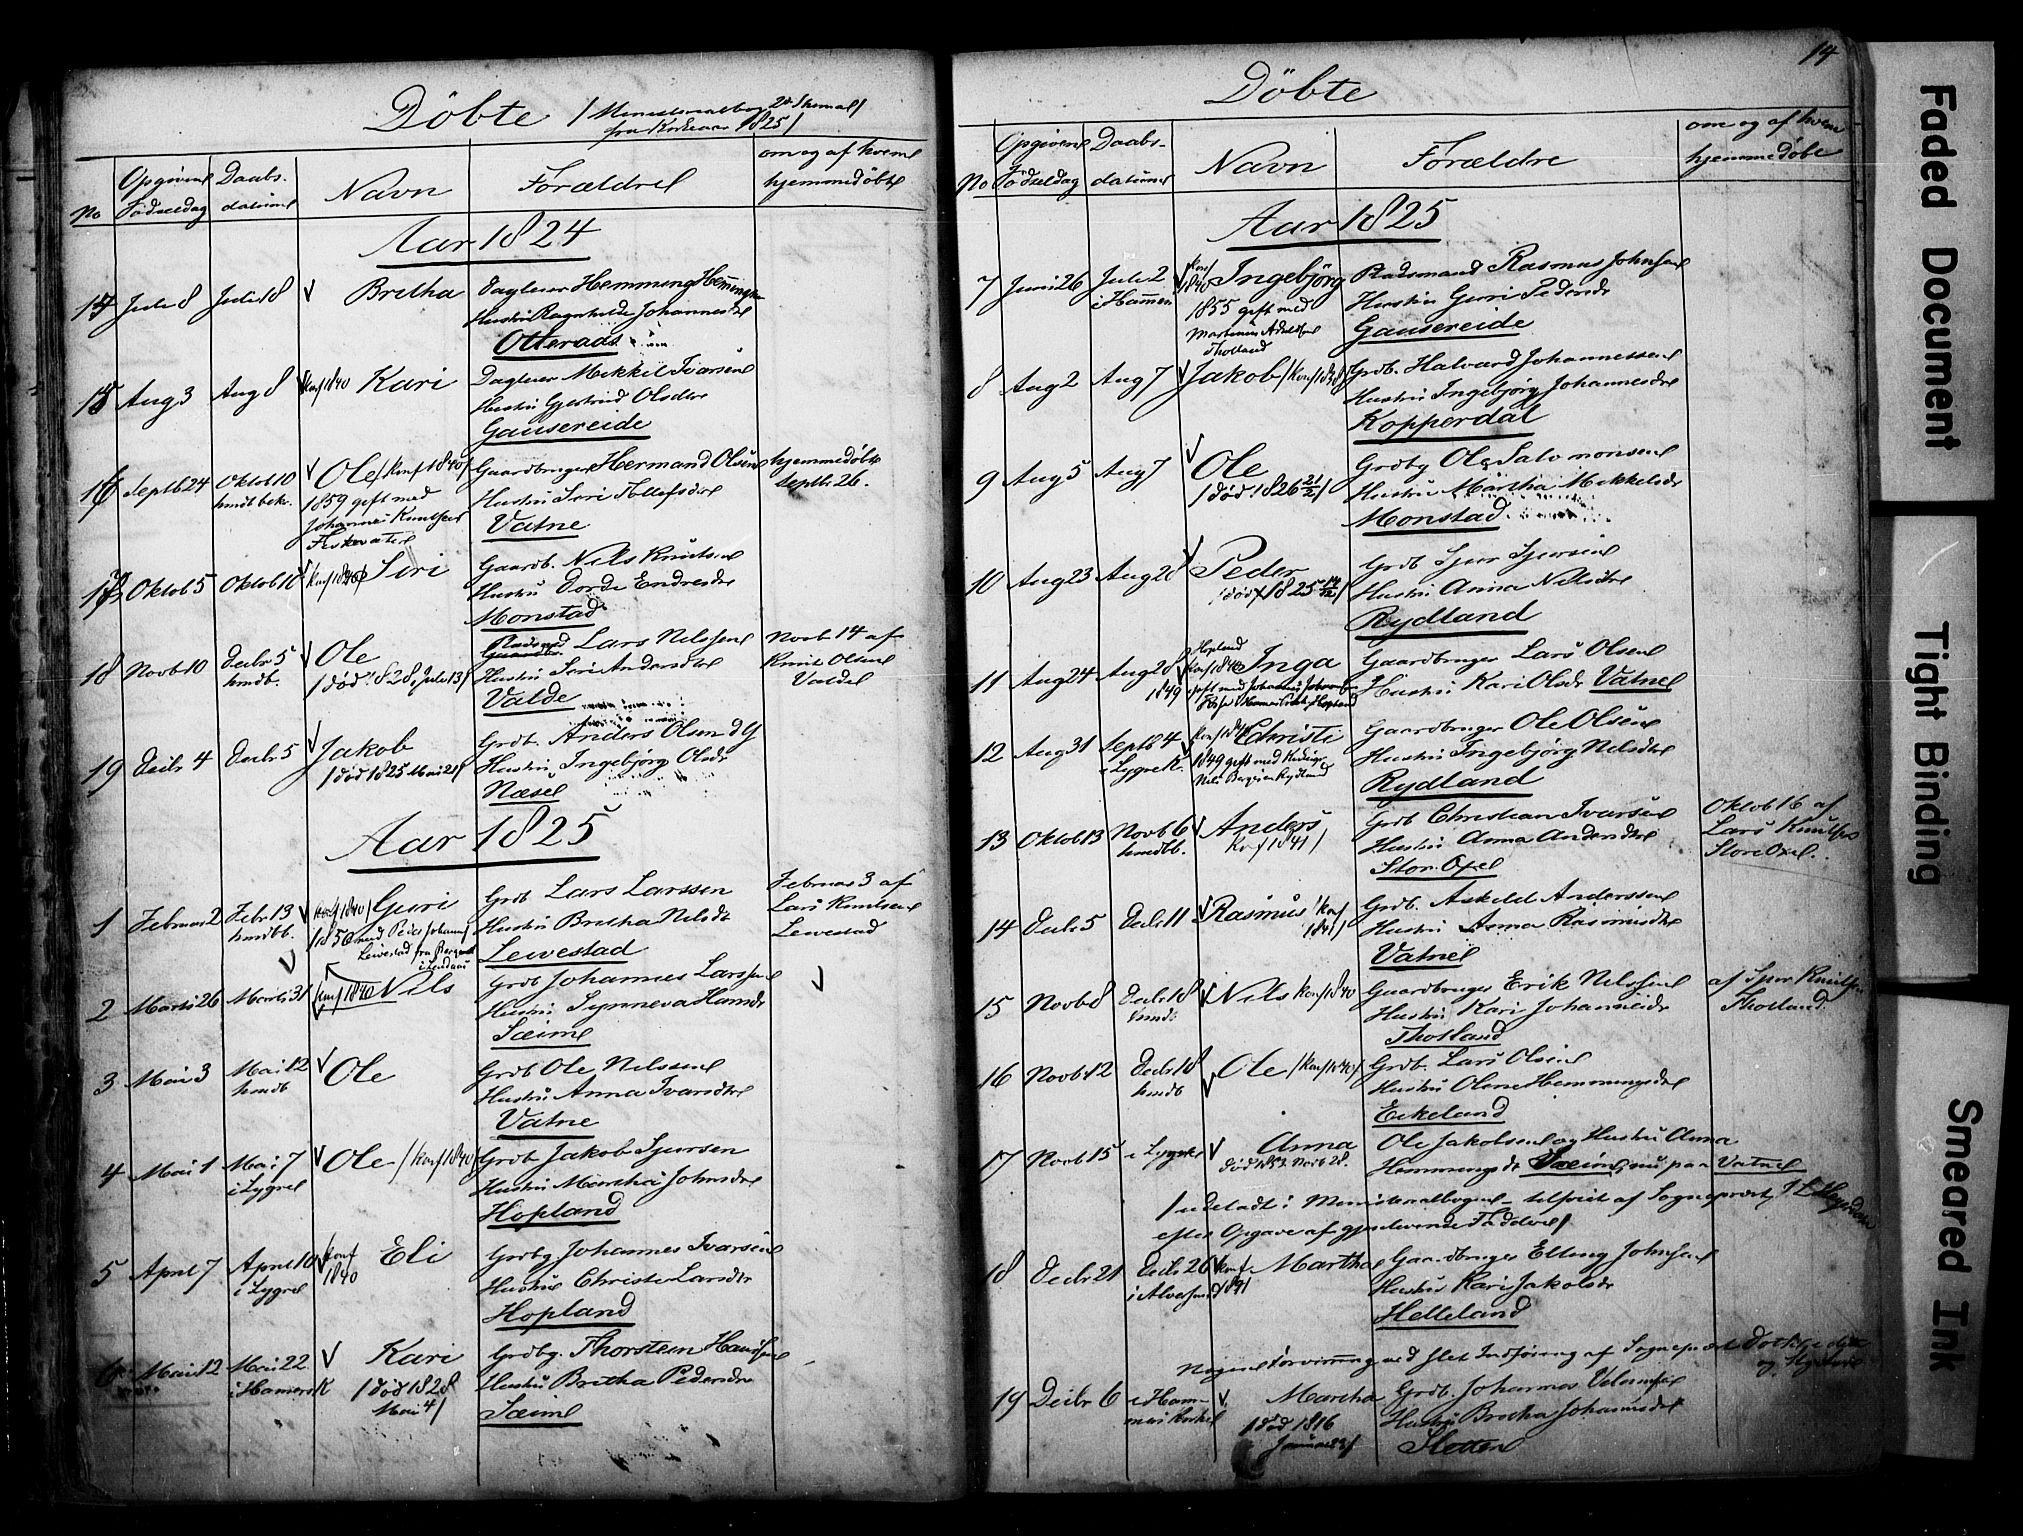 Döbte
fra Kirkeaar 1825/
No
Opgiven Födselsdag
Daabs-datum
Navn
Forældre
om og af hvem hjemmedöbt
Aar 1824
Juli 8 Juli 18 Bretha
Dagleier Hemming
Hustru Johannesdr
Otterads
15 Aug 3 Aug 8 Konf 1840 Kari
Dagleier Mikkel Ivarsen
Hustru Gjertrud Olsdtr
Gausereide
16 Septb 24 Oktob 10 hmdbekr. Ole /Konf 1840/
1859 gift med
Johannes Knutsen
Gaardbruger Hermand Olsen
Hustru Siri Tollefsdtr
Vatne
hjemmedöbt
Septb. 26.
17 Oktob 5 Oktob 10 Konf 1840 Siri
Gaardb. Nils Knutsen
Hustru Dorde Endresdtr
Monstad
18 Novb 10 Decbr 5 hmdb. Ole
/död 1828, Juli 13/
Lars Nilssen
Hustru Siri Andersdtr
Valde
Novb 14 af
Knut Olsen
Valde
19 Decbr 4 Decbr 5 Jakob
/död 1825 Mai 21/
Grdb. Anders Olsen
Hustru Ingebjörg Olsdr
Næse
Aar 1825
1 Februar 2 Febr 13 hmdb. Konf 1840/ Guri
Grdb Lars Larssen
Hustru Bretha Nilsdt
Lewestad
Februar 3 af
Lars Knutsen
Lewestad
2 Marts 26 Marts 31 Konf 1840 Nils
Grdb Johannes Larssen
Hustru Synneva Hansdr
Sæim
3 Mai 3 Mai 12 hmdb Ole
Grdb Ole Nilssen
Hustru Anna Ivarsdtr
Vatne
4 Mai 1 Mai 7 i Lygre Ole /Konf 1840/
Grdb Jakob Sjursen
Hustru Martha Johnsdr
Hopland
5 April 7 April 10 i Lygre Konf 1840 Eli
Grdbg. Johannes Ivarsen
Hustru Christi Larsdtr
Hopland
6 Mai 12 Mai 22 Kari
/död 1828
Mai 4/
Grdbg. Thorstein Hansen
Hustru Bretha Pedersdr
Sæim
14
Döbte
No
Opgiven Födselsdag
Daabs-datum
Navn
Forældre
om og af hvem hjemmedöbt
Aar 1825
7 Juni 26 Juli 2 i Hammer Konf 1840 Ingebjörg
1855 gift med
Pladsmand Rasmus Johnsen
Hustru Guri Pedersdr
Gausereide
8 Aug 2 Aug 7 Jakob
Grdb. Halvard Johannessen
Hustru Ingebjörg Johannesdr
Kopperdal
9 Aug 5 Aug 7 Ole
/död 1826 21/2/
Grdbg Ole Salomonsen
Hustru Martha Mikkelsdr
Monstad
10 Aug 23 Aug 28 Peder
Grdb Sjur Sjursen
Hustru Anna Nilsdtr
Rydland
11 Aug 24 Aug 28 Inga
1849 gift med Johannes
Gaardbruger Lars Olsen
Hustru Kari Olsdr Vatne
12 Aug 31 Septb 4 i Lygre K. Christi
1849 gift med
Rydland
Gaardbruger Ole Olsen
Hustru Ingebjörg Nilsdtr
Rydland
13 Oktob 13 Novb 6 hmdb. Anders
Konf 1841/
Grdb Christian Ivarsen
Hustru Anna Andersdtr
Stor Oxe
Oktob 16 af
Lars Knutsen
Store Oxe.
14 Decbr 5 Decbr 11 Rasmus /Konf 1841/
Grdb. Askild Anderssen
Hustru Anna Rasmusdtr
Vatne
15 Novb 8 Decbr 18 hmdb Nils Konf 1840
Gaardbruger Erik Nilssen
Hustru Kari Johannesdr
Thotland
af Sjur Knutsen
Thotland
16 Novb 12 Decbr 18 hmdb Ole /Konf 1840/
Grdb. Lars Olsen
Hustru Oline Hemmingsdtr
Eikeland
17 Novb 15 i Lygre Anna
Ole Jakobsen og Hustru Anna
Hemmingsdt Sæim, nu paa Vatne
/udeladt i Ministerialbogen — tilföiet af Sogneprest
efter Opgave af gjenlevende Faddere/
18 Decbr 21 Decbr 26 i Alversund Konf 1841 Martha
Gaardbruger Elling Johnsen
Hustru Kari Jakobsdr
Helleland
Nogen Forvirring ved Indföring af Sogneprest
19 Decbr 6 i Hammers Kirke Martha
/död 1816
Januar
Grdb. Johannes
Hustru Bretha Johannesdr
Sletten
Faded Document
Tight Binding
Smeared Ink